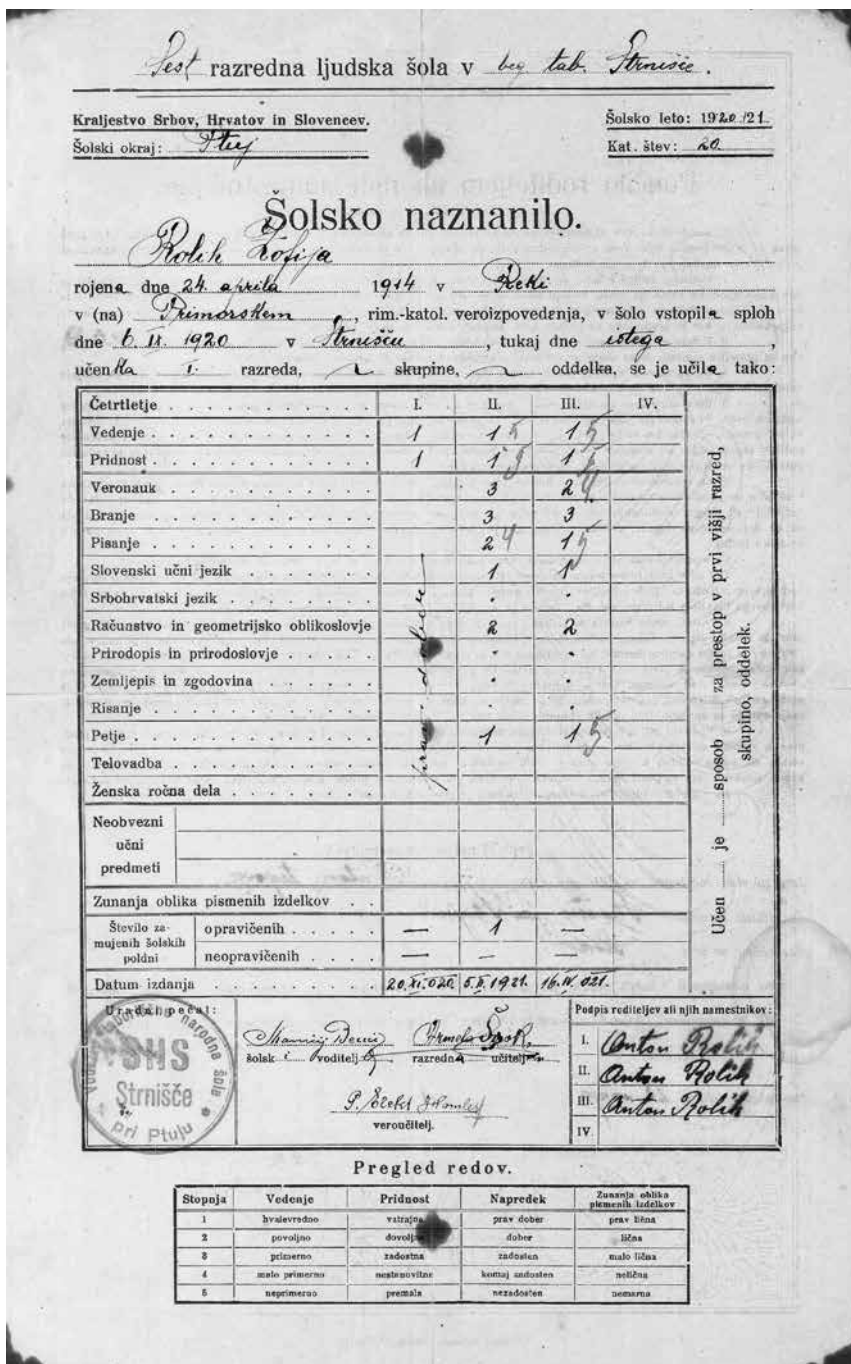 Šest razredna ljudska šola v beg. tab. Strnišče.
Kraljestvo Srbov, Hrvatov in Slovencev.
Šolsko leto: 1920/21.
Šolski okraj: Ptuj
Kat. štev: 20.
Šolsko naznanilo.
Rolih Žofija
rojena dne 24. aprila 1914 v Reki
v (na) Primorskem, rim.-katol. veroizpovedanja, v šolo vstopila sploh
dne 6. IX. 1920 v Strnišču, tukaj dne istega,
učenka I. razreda, skupine, oddelka, se je učila tako:
Četrtletje I. II. III. IV.
Vedenje 1 1 5 1 5
Pridnost 1 1 5 1 5
Veronauk 3 2 4
Branje 3 3
Pisanje 2 4 1 5
Slovenski učni jezik 1 1
Srbohrvatski jezik . .
Računstvo in geometrijsko oblikoslovje 2 2
Prirodopis in prirodoslovje . .
Zemljepis in zgodovina . .
Risanje . .
Petje 1 1 5
Telovadba
Ženska ročna dela
prav dober
Neobvezni
učni
predmeti
Zunanja oblika pismenih izdelkov
Število za-
mujenih šolskih
poldni
opravičenih — 1 —
neopravičenih — — —
Datum izdanja 20. XI. 020. 5. II. 1921. 16. IV. 021.
Učen je sposob za prestop v prvi višji razred,
skupino, oddelek.
Uradni pečat:
narodna šola
SHS
Strnišče
pri Ptuju
šolski voditelj
razredna učitelj
veroučitelj.
Podpis roditeljev ali njih namestnikov:
I. Anton Rolih
II. Anton Rolih
III. Anton Rolih
IV.
Pregled redov.
Stopnja Vedenje Pridnost Napredek Zunanja oblika pismenih izdelkov
1 hvalevredno vztrajna prav dober prav lična
2 povoljno dovoljna dober lična
3 primerno zadostna zadosten malo lična
4 malo primerno nestanovitna komaj zadosten nelična
5 neprimerno premala nezadosten nemarna